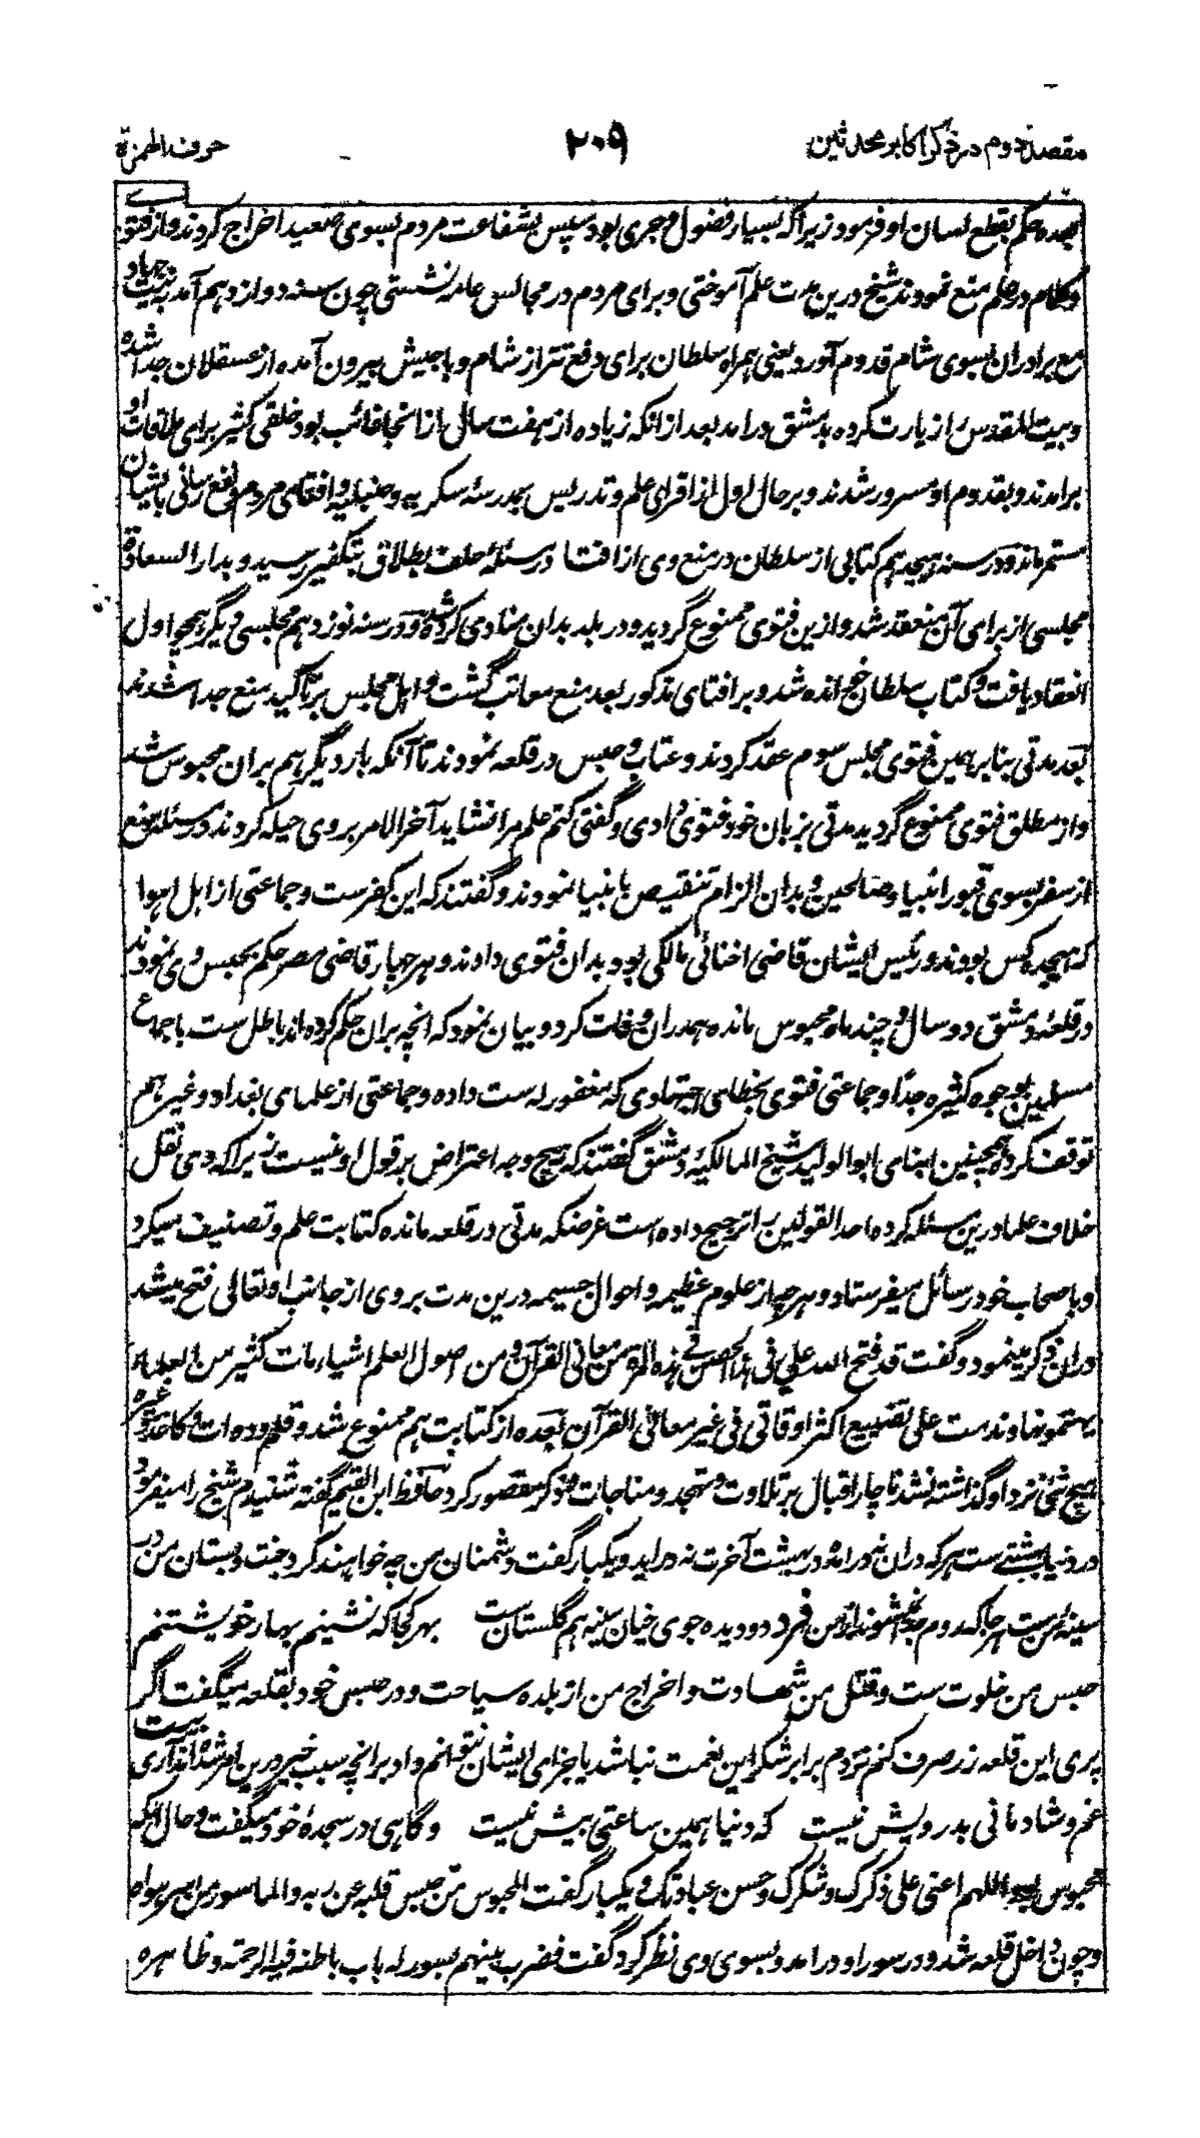 مقصد دوم در ذکر اکابر محدثین ۲۰۹ حرف الهمزة
بعده حکم بقطع لسان او فرمود زیراکه بسیار فضول و جری بود سپس بشفاعت مردم بسوی صعید اخراج کردند و از فتوی
و کلام در علم منع نمودند شیخ درین مدت علم آموختی و برای مردم در مجالس عامه نشستی چون سنه دوازدهم آمد به نیت جهاد
مع برادران بسوی شام قدوم آورد یعنی همراه سلطان برای دفع تتر از شام و با جیش بیرون آمده از عسقلان جدا شده
و بیت المقدس را زیارت کرده بدمشق درامد بعد ازانکه زیاده از هفت سال ازانجا غائب بود خلقی کثیر برای ملاقات او
برامدند و بقدوم او مسرور شدند و بر حال اول از اقرای علم و تدریس بمدرسهٔ سکریه و حنبلیه و افتای مردم و نفع رسانی بایشان
مستمر ماند و در سنه هیجدهم کتابی از سلطان در منع وی از افتا در مسئلهٔ حلف بطلاق بتکفیر رسید و بدار السعادة
مجلسی از برای آن منعقد شد و ازین فتوی ممنوع گردید و در بلد بدان منادی کرده شد و در سنه نوزدهم مجلسی دیگر همچو اول
انعقاد یافت و کتاب سلطان خوانده شد و بر افتای مذکور بعد منع معاتب گشت و اهل مجلس بر تاکید منع جدا شدند
بعد مدتی بنابر همین فتوی مجلس سوم عقد کردند و عتاب و حبس در قلعه نمودند تا آنکه بار دیگر هم بران محبوس شد
و از مطلق فتوی ممنوع گردید مدتی بزبان خود فتوی دادی و گفتی کتم علم مرا نشاید آخر الامر بر وی حیله کردند در مسئله منع
از سفر بسوی قبور انبیا و صالحین و بدان الزام تنقیص بانبیا نمودند و گفتند که این کفرست و جماعتی از اهل اهوا
که هیجده کس بودند و رئیس ایشان قاضی اخنائی مالکی بود بدان فتوی دادند و هر چهار قاضی مصر حکم بحبس وی نمودند
در قلعهٔ دمشق دو سال و چند ماه محبوس مانده همدران وفات کرد و بیان نمود که انچه بران حکم کرده اند باطل ست باجماع
مسلمین بوجوه کثیره جدًّا و جماعتی فتوی بخطای اجتهادی که مغفور له ست داده و جماعتی از علمای بغداد و غیر هم
توقف کرده همچنین ابنای ابو الولید شیخ المالکیهٔ دمشق گفتند که هیچ وجه اعتراض بر قول او نیست زیراکه وی نقل
خلاف علما درین مسئله کرده احد القولین را ترجیح داده است غرضکه مدتی در قلعه مانده کتابت علم و تصنیف میکرد
و باصحاب خود رسائل میفرستاد و هرچه از علوم عظیمه و احوال جسیمه درین مدت بروی از جانب او تعالی فتح میشد
دران ذکر مینمود و گفت قد فتح الله علی فی هذا الحصن فی هذه المرة من معانی القرآن و من اصول العلم اشیاء مات کثیر من العلماء
یتمنونها و ندمت علی تضییع اکثر اوقاتی فی غیر معانی القرآن بعده از کتابت هم ممنوع شد و قلم و دوات و کاغذ و غیره
هیچ شئ نزد او گذاشته نشد ناچار اقبال بر تلاوت و تهجد و مناجات و ذکر مقصور کرد حافظ ابن القیم گفته شنیدم شیخ را میفرمود
در دنیا بهشتی ست هرکه دران نه درامد در بهشت آخرت نه دراید و یکبار گفت دشمنان من چه خواهند کرد جنت و بستان من در
سینهٔ من ست هر جا که روم جدا نشوند از من فرد دو دیده جوی خیابان سینه هم گلستان ست بهر کجا که نشینم بهار خویشتنم
حبس من خلوت ست و قتل من شهادت و اخراج من از بلده سیاحت و در حبس خود بقلعه میگفت اگر
پری این قلعه زر صرف کنم نزدم برابر شکر این نعمت نباشد یا جزای ایشان نتوانم داد برانچه سبب خیر درین امر شده اند آری بیت
غم و شادمانی بدرویش نیست که دنیا همین ساعتی بیش نیست و گاهی در سجدهٔ خود میگفت و حال آنکه
محبوس بود اللهم اعنی علی ذکرک و شکرک و حسن عبادتک و یکبار گفت المحبوس من حبس قلبه عن ربه و الماسور من اسره هواه
و چون داخل قلعه شد و در سور او درامد و بسوی وی نظر کرد گفت فضرب بینهم بسور له باب باطنه فیه الرحمة و ظاهره